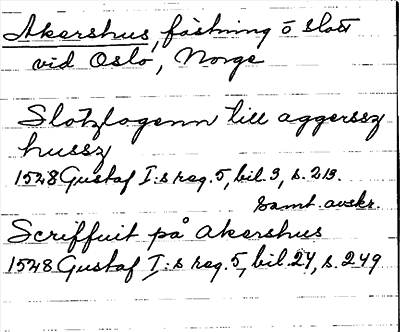 Akershus, fästning o slott
vid Oslo, Norge
Slotzlogenn till aggerssz
hussz
1528 Gustaf I:s reg. 5, bil. 3, s. 213.
Samt. avskr.
Scriffuit på Akershus
1528 Gustaf I:s reg. 5, bil. 24, s. 249